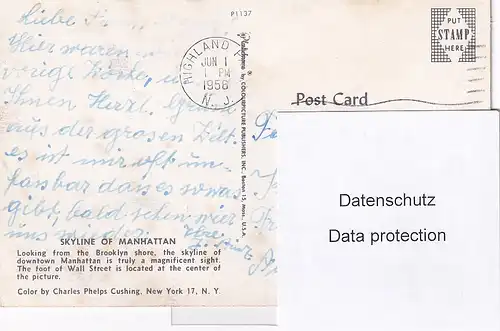 P1137
PUT
STAMP
HERE
Liebe
Hier waren
vorige Woche, u
Ihnen Herzl. Grüsse
aus der grosen Welt.
es ist mir oft un-
fasbar das es sowas
gibt, bald sehen wir
uns wieder. Ihre
HIGHLAND P
JUN 1
1 PM
1958
N. J.
Plastichrome ® by COLOURPICTURE PUBLISHERS, INC., Boston 15, Mass., U.S.A.
Post Card
Datenschutz
Data protection
SKYLINE OF MANHATTAN
Looking from the Brooklyn shore, the skyline of
downtown Manhattan is truly a magnificent sight.
The foot of Wall Street is located at the center of
the picture.
Color by Charles Phelps Cushing, New York 17, N. Y.